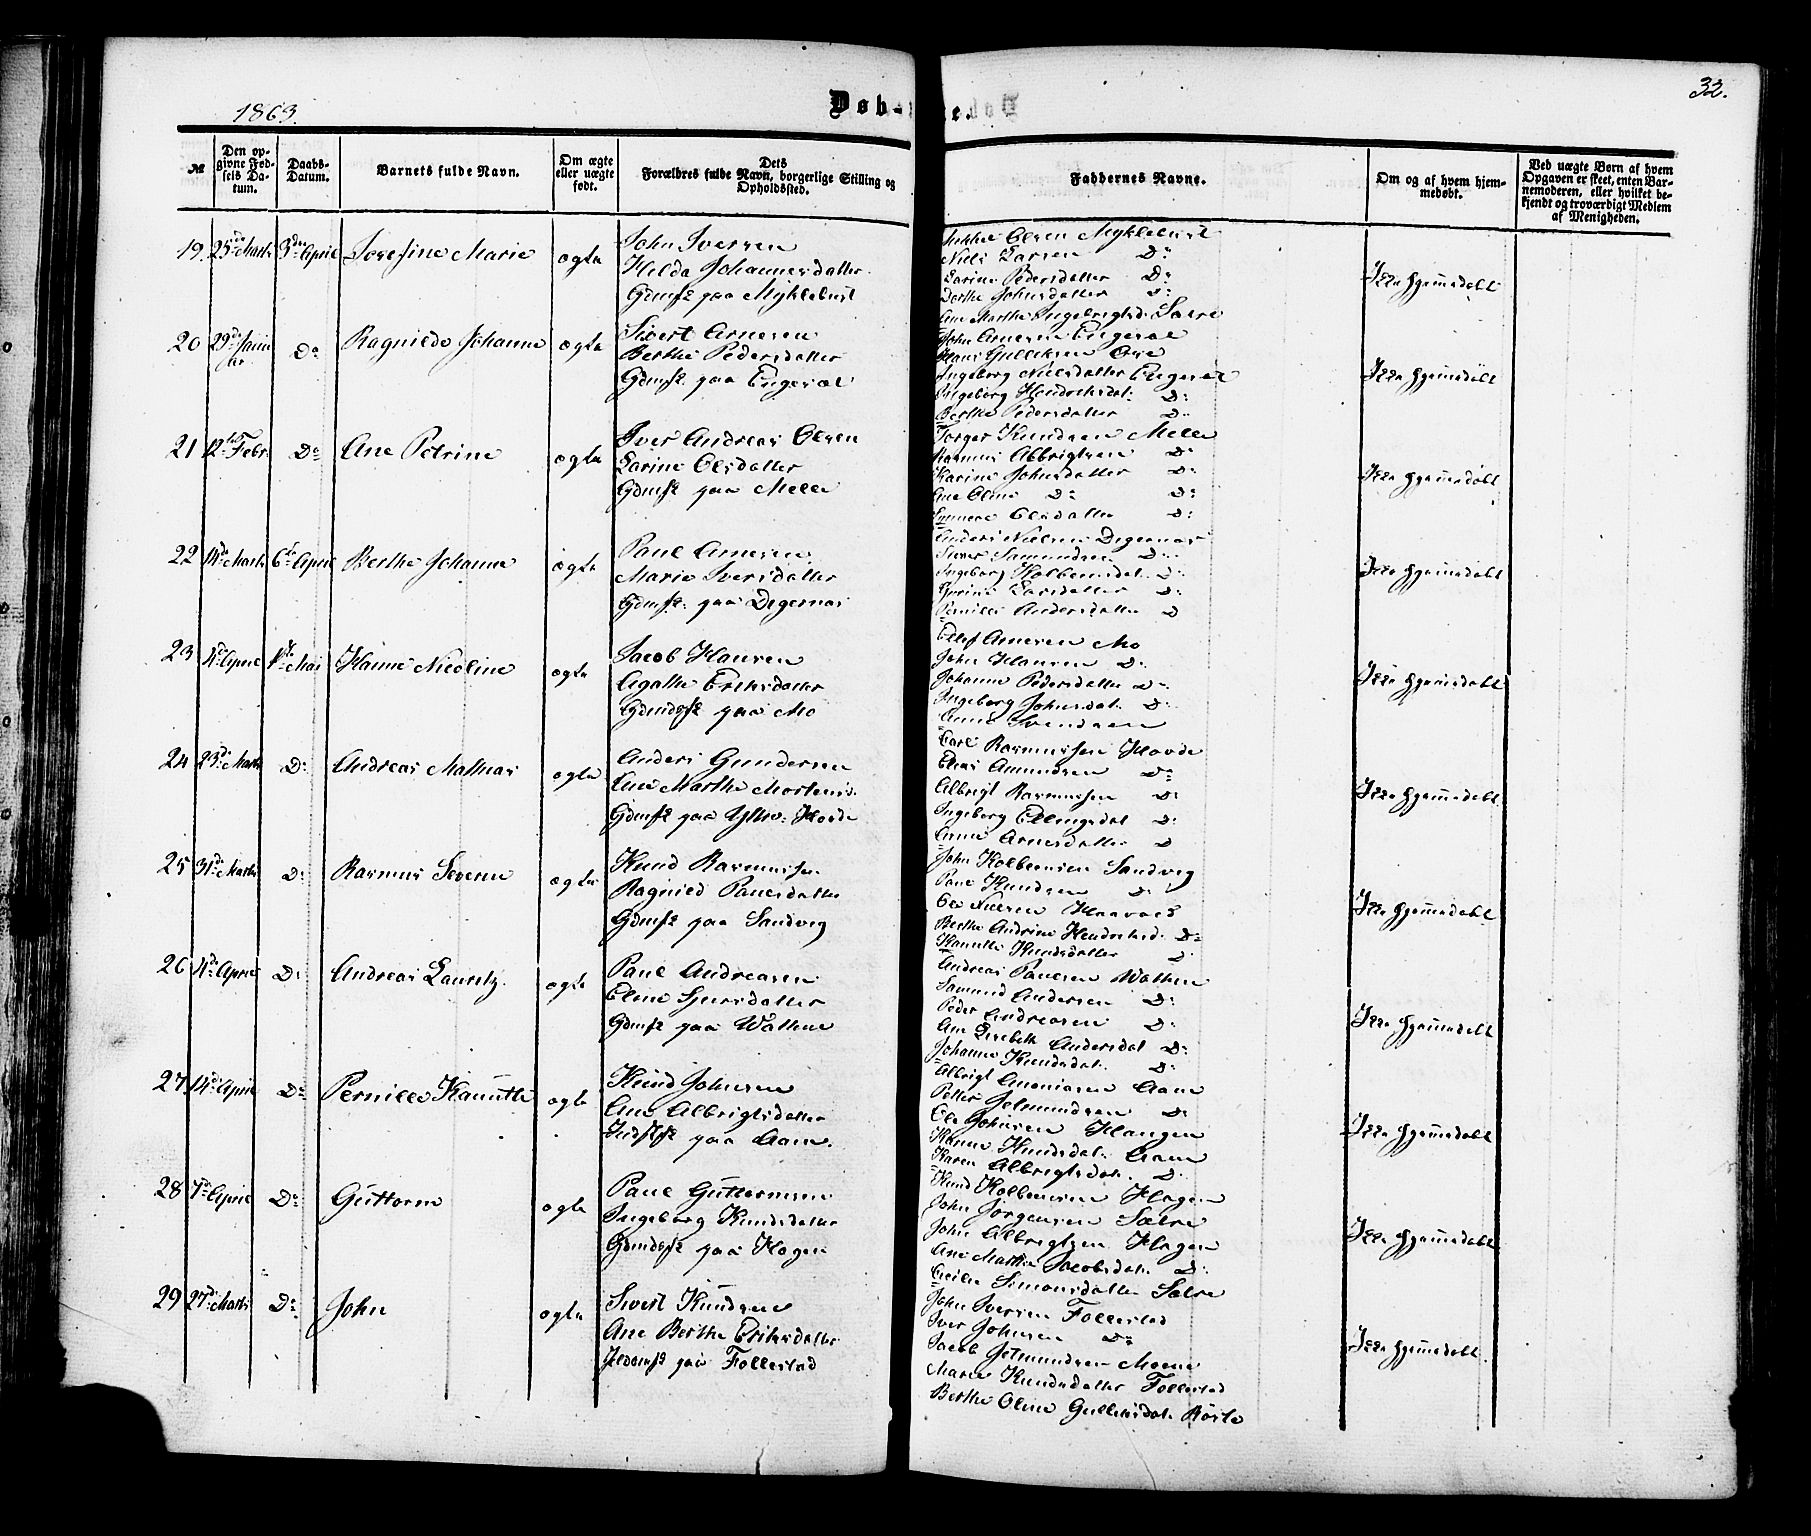 1863.
Døb-
32.
№
Den op-
givne Fød-
sels Da-
tum.
Daabs-
Datum.
Barnets fulde Navn.
Om ægte
eller uægte
født.
Dets
Forældres fulde Navn, borgerlige Stilling og
Opholdssted.
Faddernes Navne.
Om og af hvem hjem-
medøbt.
Ved uægte Børn af hvem
Opgaven er skeet, enten Bar-
nemoderen, eller hvilket be-
kjendt og troværdigt Medlem
af Menigheden.
19. 25de Marts 3die April Josefine Marie ægte
John Iversen
Helda Johannesdatter
Gdmfk paa Myklebust
Olsen Myklebust
Niels Larsen Do
Larine Pedersdatter Do
Dorthe Johnsdatter Do
Ane Marthe Ingebrigtsd. Sætre
Ikke hjemmedøbt
20 29de Janu
ar Do Ragnilde Johanne ægte
Sivert Arnesen
Berthe Pedersdatter
Gdmfk. paa Engeset
John Arnesen Engeset
Hans Gulliksen
Ingeborg Nielsdatter Engeset
Ingeborg Hendriksdat. Do
Berthe Pedersdatter Do
Ikke hjemmedøbt
21 12te Febr. Do Ane Petrine ægte
Iver Andreas Olsen
Larine Olsdatter
Gdmfk paa Melle
Torger Knudsen Melle
Rasmus Albrigtsen Do
Karine Johnsdatter Do
Ane Oline Do Do
Olsdatter Do
Ikke hjemmedøbt
22 14de Marts 6te April Berthe Johanne ægte
Paul Arnesen
Marie Iversdatter
Gdmfk. paa Digernæs
Anders Nielsen Digernæs
Iver Samundsen Do
Ingeborg Kolbensdat. Do
Larsdatter Do
Pernille Andersdatter Do
Ikke hjemmedøbt
23 4de April 1ste Mai Hanne Nicoline ægte
Jacob Hansen
Agathe Eriksdatter
Gdmdsfk paa Mo
Ellef Arnesen Mo
John Hansen Do
Johanne Pedersdatter Do
Ingeborg Johnsdat. Do
Anne Svendsen
Ikke hjemmedøbt
24 23de Marts Do Andreas Mathias ægte
Anders Gundersen
Ane Marthe Mortensd.
Gdmfk paa Yttre Hovde
Carl Rasmussen Hovde
Elias Amundsen Do
Albrigt Rasmussen Do
Ingeborg Ellingsdat Do
Anne Arnesdatter Do
Ikke hjemmedøbt
25 31te Marts Do Rasmus Severin ægte
Knud Rasmussen
Ragnild Paulsdatter
Gdmfk paa Sandvig
John Kolbensen Sandvig
Paul Knudsen Do
Ole Nielsen Haavaes
Berthe Andrine Hendriksd. Do
Hanette Knudsdatter Do
Ikke hjemmedøbt
26 4de April Do Andreas Lauritz. ægte
Paul Andreasen
Eline Sjursdatter
Gdmfk paa Watne
Andreas Paulsen Watne
Samund Andersen Do
Peder Andreasen Do
Ane Lisebeth Andersdat Do
Johanne Knudsdat. Do
Ikke hjemmedøbt
27 14de April Do Pernille Knutte ægte
Knud Johnsen
Ane Albrigtsdatter
Indstfk paa Aam.
Albrigt Ananiasen Aam
Petter Jetmundsen Do
Ole Johnsen Haugen
Karen Knudsdat. Aam
Karen Albrigtsdat. Do
Ikke hjemmedøbt
28 7de April Do Guttorm ægte
Paul Guttormsen
Ingeborg Knudsdatter
Gdmdsfk paa Hagen
Knud Kolbensen Hagen
John Jørgensen Sætre
John Albrigtsen Hagen
Ane Marthe Jacobsdat. Do
Cecilie Simonsdatter Sætre
Ikke hjemmedøbt
29 27de Marts Do John ægte
Sivert Knudsen
Ane Berthe Eriksdatter
paa Follestad
John Iversen Follestad
Iver Johnsen Do
Jacob Jetmundsen Moene
Marie Knudsdatter Follestad
Berthe Oline Gulliksdat.
Ikke hjemmedøbt.